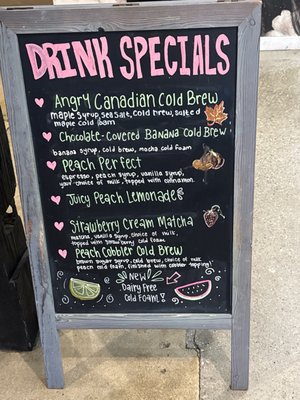 DRINK SPECIALS
Angry Canadian Cold Brew
maple syrup, sea salt, cold brew, salted
maple cold foam
Chocolate-Covered Banana Cold Brew
banana syrup, cold brew, mocha cold foam
Peach Perfect
espresso, peach syrup, vanilla syrup,
your choice of milk, topped with cinnamon
Juicy Peach Lemonade
Strawberry Cream Matcha
matcha, vanilla syrup, choice of milk,
topped with strawberry cold foam
Peach Cobbler Cold Brew
brown sugar syrup, cold brew, choice of milk,
peach cold foam, finished with cobbler topping!
NEW
Dairy Free
Cold Foam!